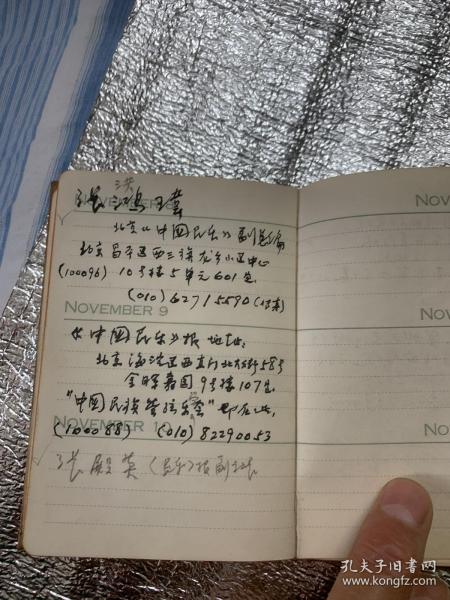 洪
张鸿玉
北京《中国民乐》副总编
北京昌平区西三旗
(100096) 10号楼5单元601室
(010) 62715590
NOVEMBER 9
《中国民乐》报地址:
北京海淀区西直门北大街58号
金晖嘉园9号楼107室
"中国民族管弦乐
NOVEMBER 1
(100088) (010) 82290053
张殿英(民乐)报副
NOV
NO
孔夫子旧书网
www.kongfz.com